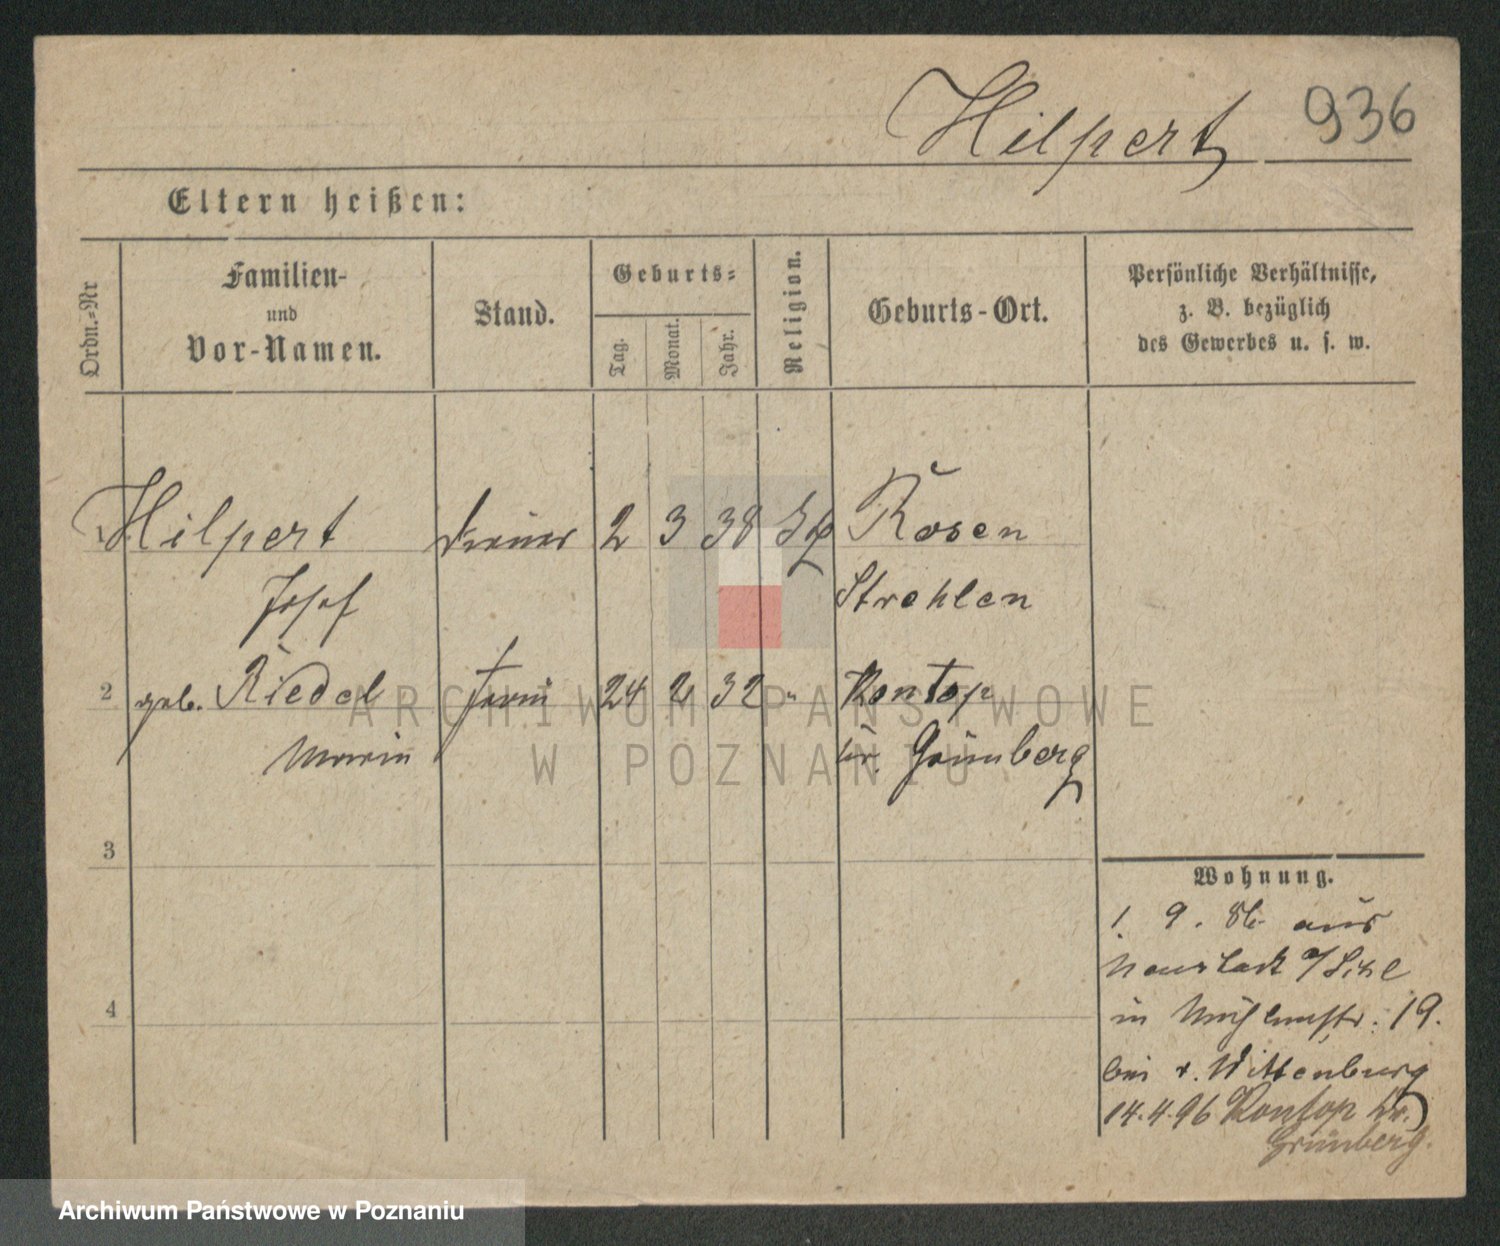 Hilpert 936
Eltern heißen:
Ordn.-Nr
Familien-
und
Vor-Namen.
Stand.
Geburts-
Tag.
Monat.
Jahr.
Religion.
Geburts-Ort.
Persönliche Verhältnisse,
z. B. bezüglich
des Gewerbes u. s. w.
Hilpert Diener 2 3 38 Rosen
Josef Strehlen
2 geb. Riedel 24 2 32 " Kontop
Maria Kr. Grünberg
3
Wohnung.
1. 9. aus
Neustadt
4
in Mühlenstr. 19.
bei v. Wittenburg
14.4.96 Kontop Kr.
Grünberg.
ARCHIWUM PAŃSTWOWE
W POZNANIU
Archiwum Państwowe w Poznaniu